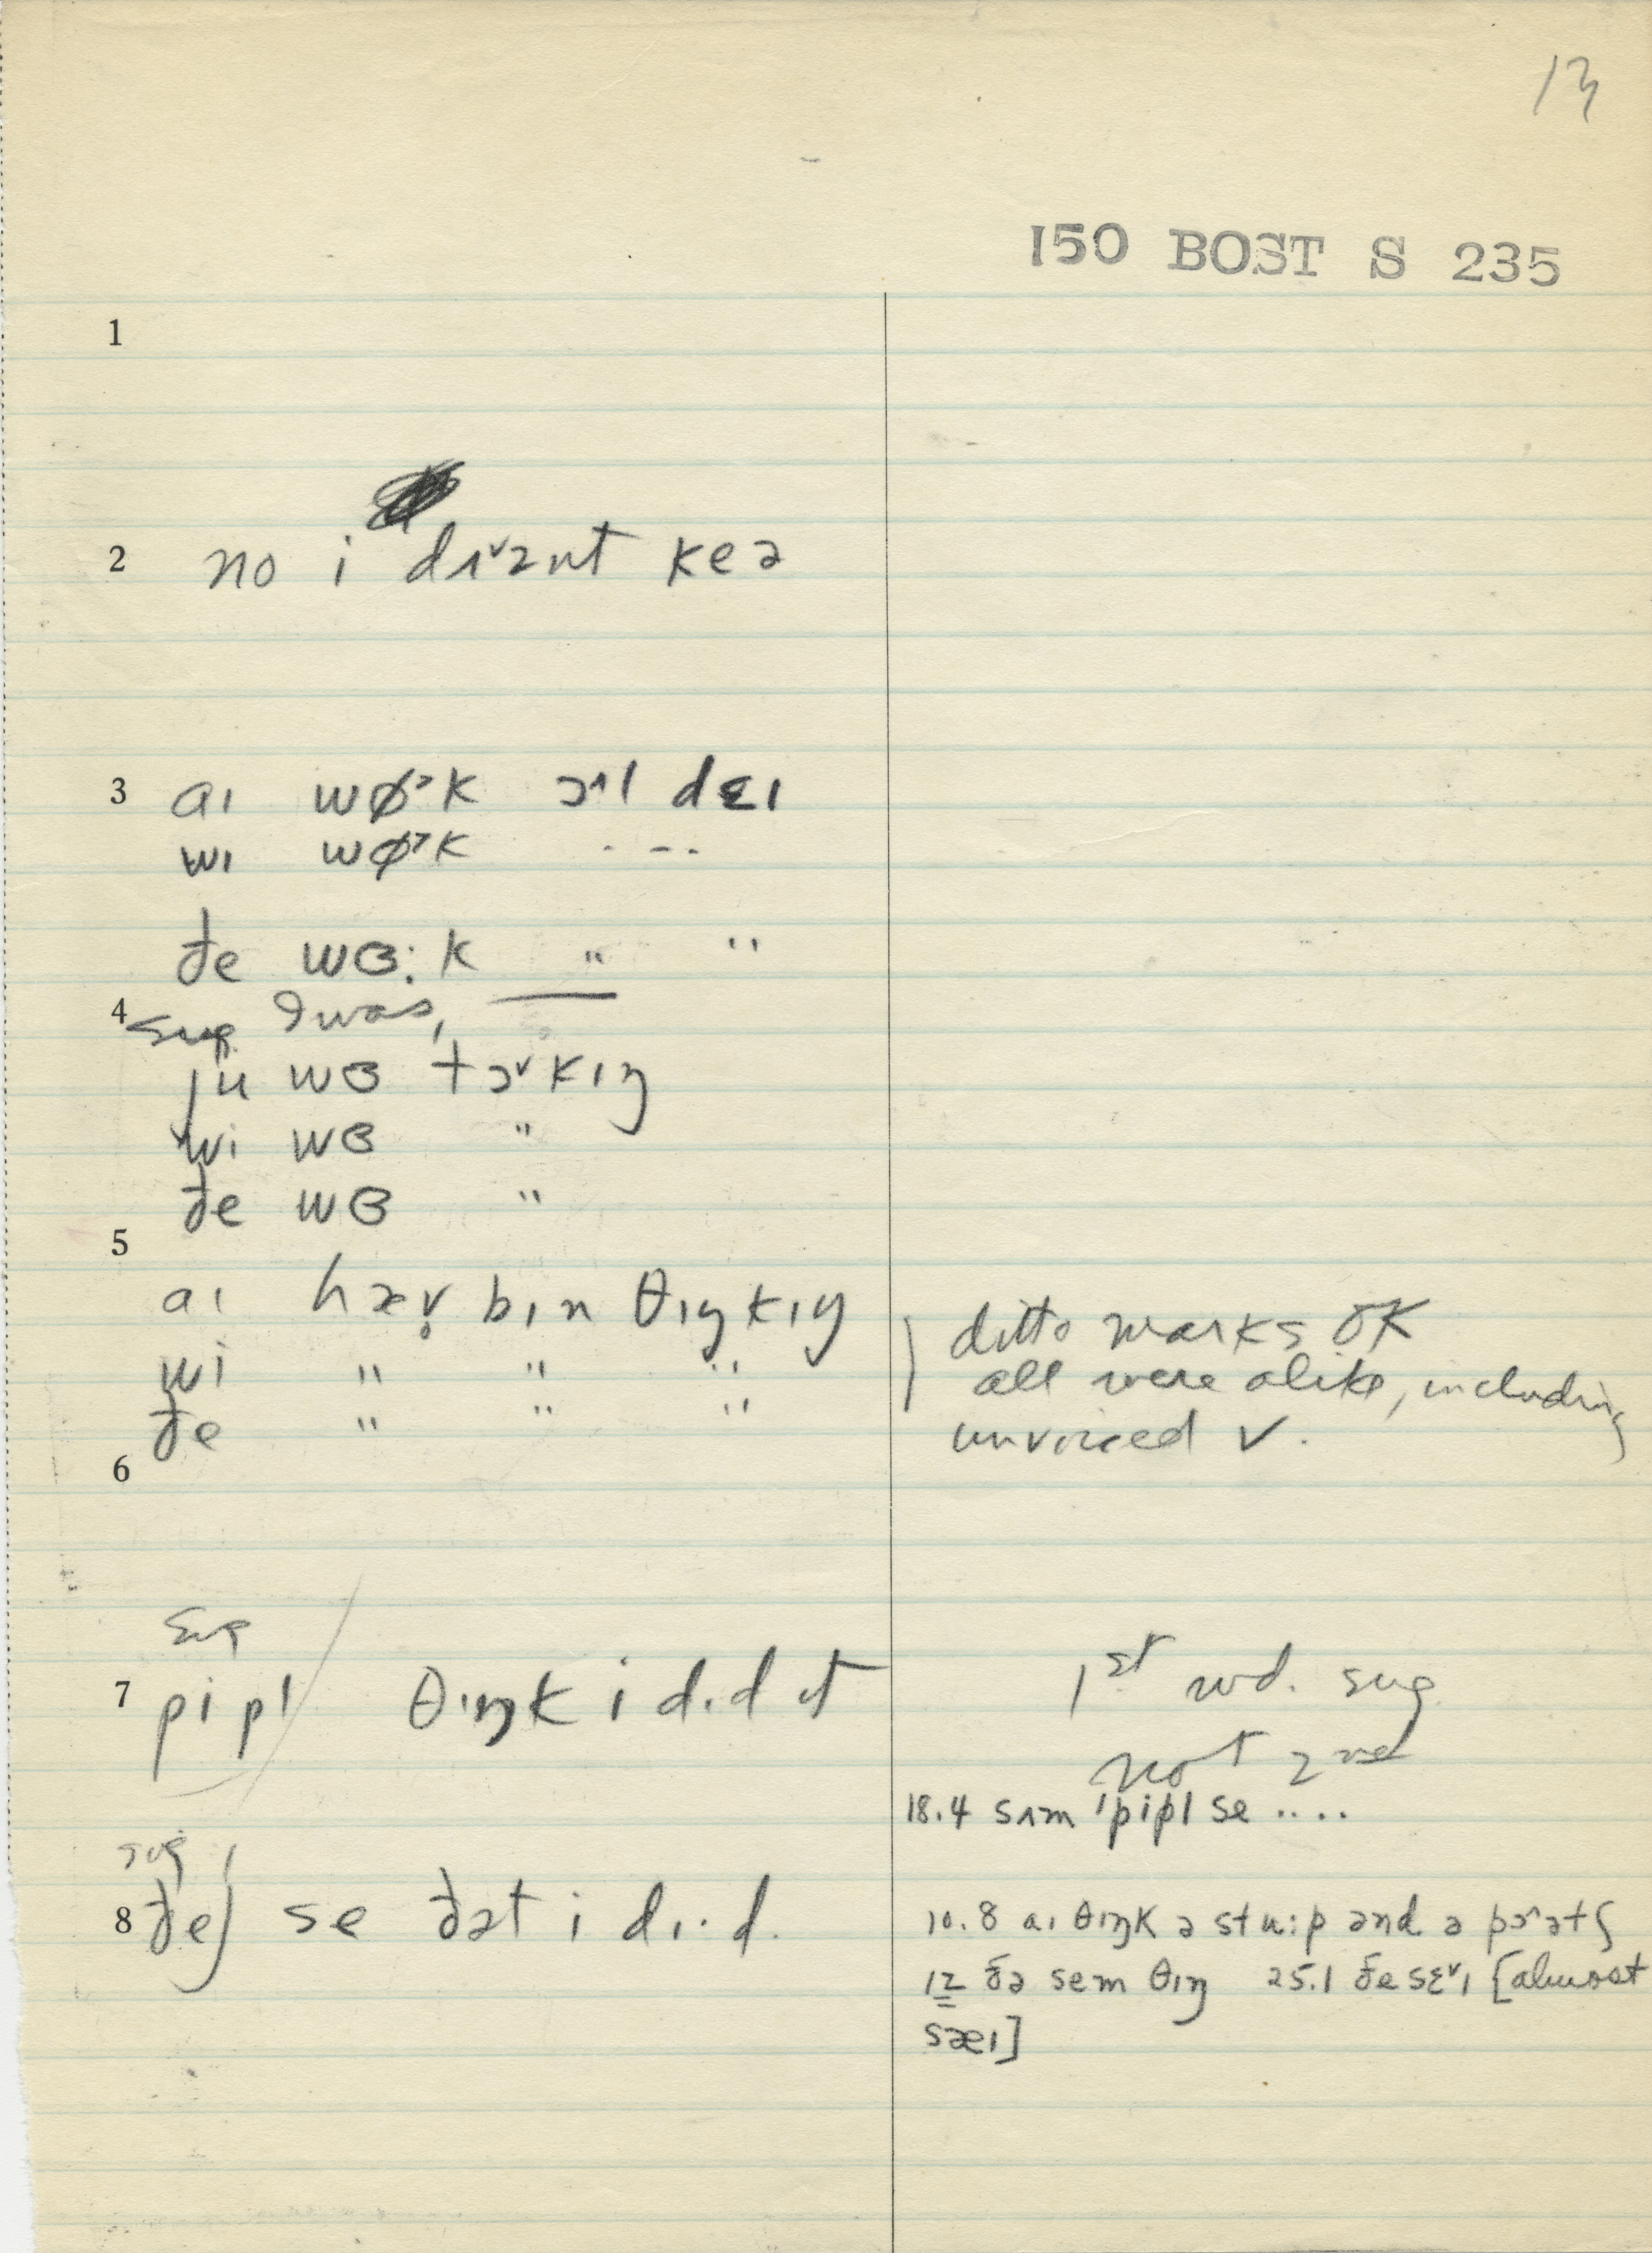 13
150 BOST S 235
1
2 no i dɪ˅znt keə
3 aɪ wɵ˃k ɔ˄l dɛɪ
wɪ wɵ˃k . - - .
ðe wɞ:k " "
4 sug. I was, —
ju wɞ tɔ˅kɪŋ
wi wɞ "
ðe wɞ "
5 aɪ hæv̥ bɪn θɪŋkɪŋ
ditto marks OK
wi " " "
all were alike, including
ðe " " "
unvoiced v.
6
sug
7 pipl / θɪŋk i dɪd ɪt
1st wd. sug
not 2nd
18.4 sʌm 'pipl se ....
sug
8 ðe) se ðət i dɪ·d.
10.8 aɪ θɪŋk ə stu:p ənd ə pɔ˄ətʃ
12 ðə sem θɪŋ 25.1 ðe sɛ˅ɪ [almost
sæɪ]